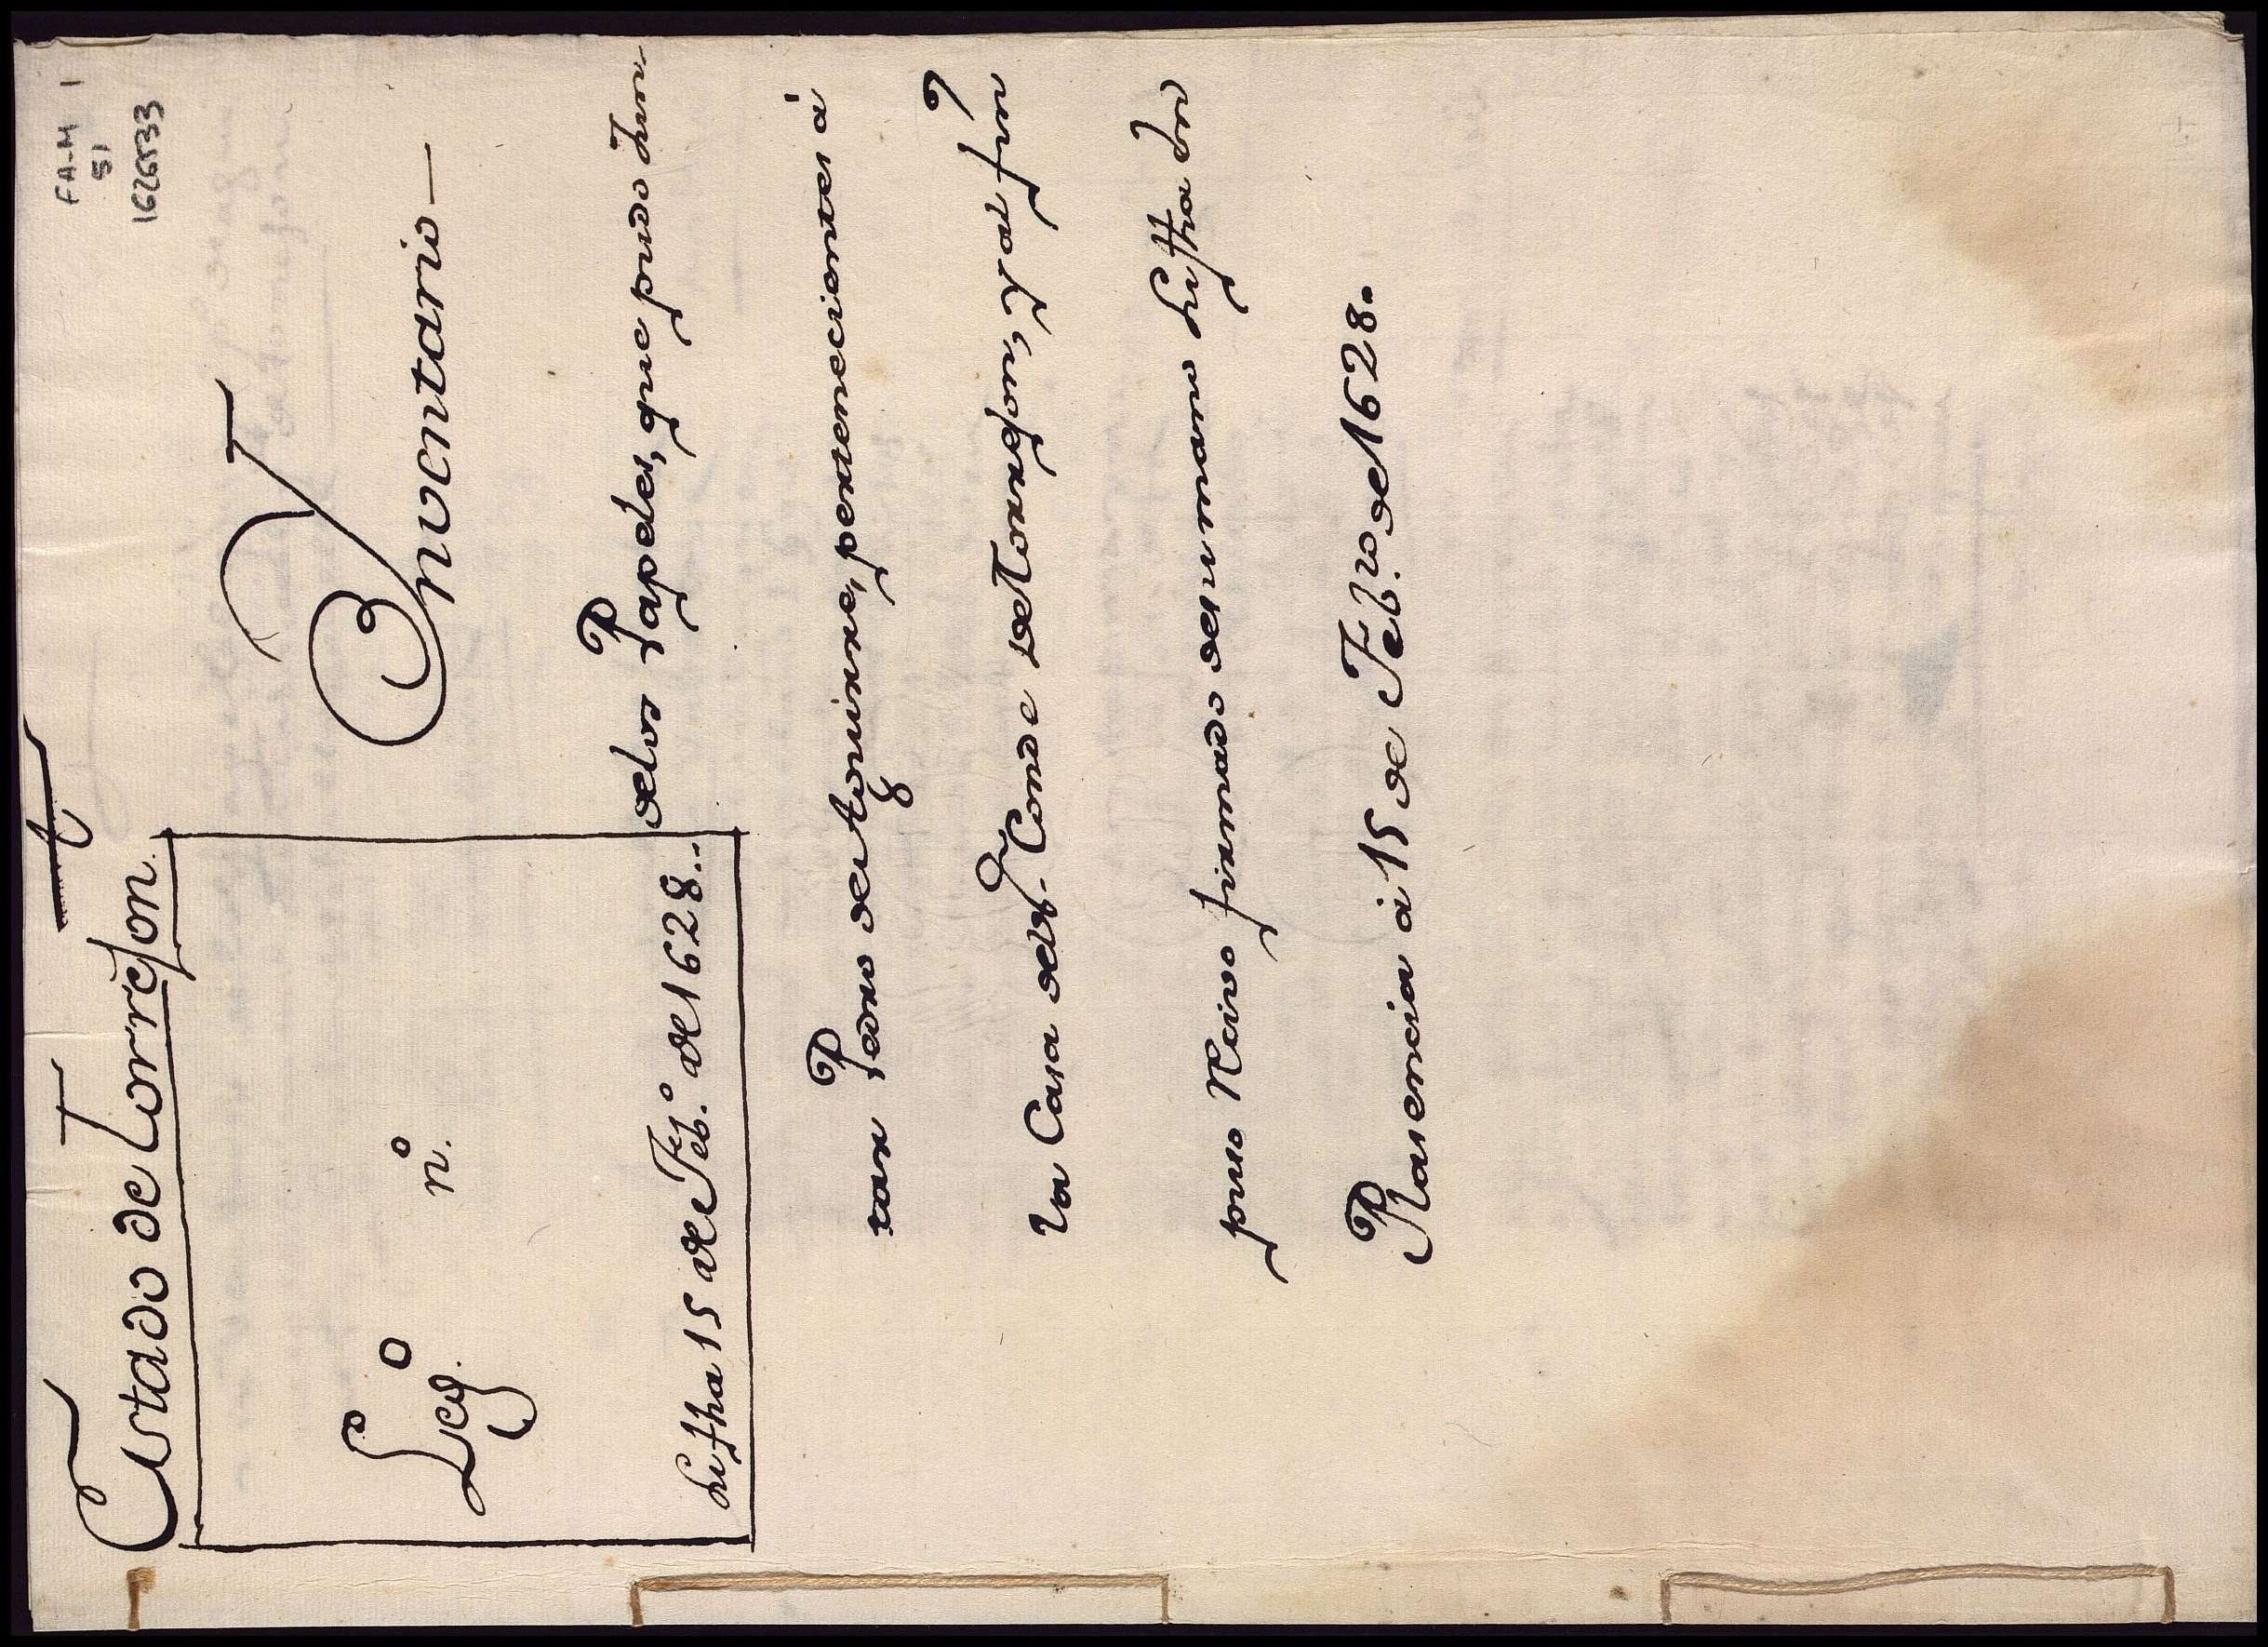 FA-M 1
51
1626833
t
Estado de Torrejon.
Leg.º nº.
Su fha 15 de Feb.º de 1628..
Inventario—
delos Papeles, que pudo Jun
tar Pedro de Aguirre, pertenecientes à
la Casa del Sr. Conde de Torrejon, y al fin
puso Recivo firmado de su mano Su fha En
Plasencia à 15 de Feb.ro de 1628.